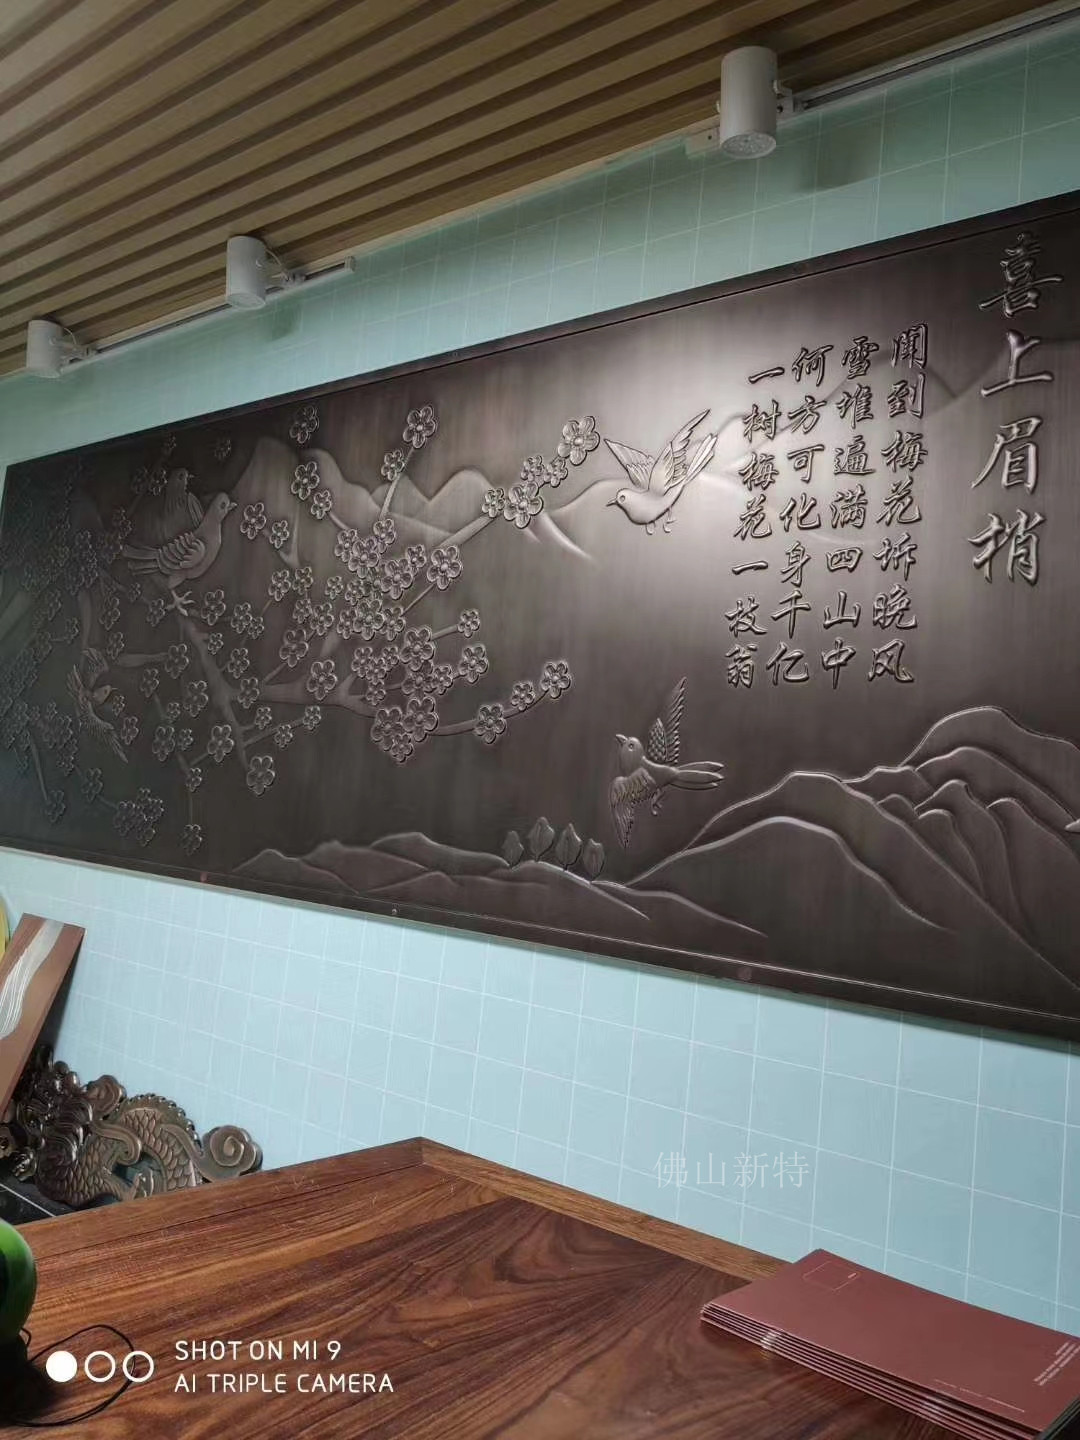 喜上眉梢
闻到梅花坼晚风
雪堆遍满四山中
何方可化身千亿
一树梅花一枝翁
佛山新特
SHOT ON MI 9
AI TRIPLE CAMERA